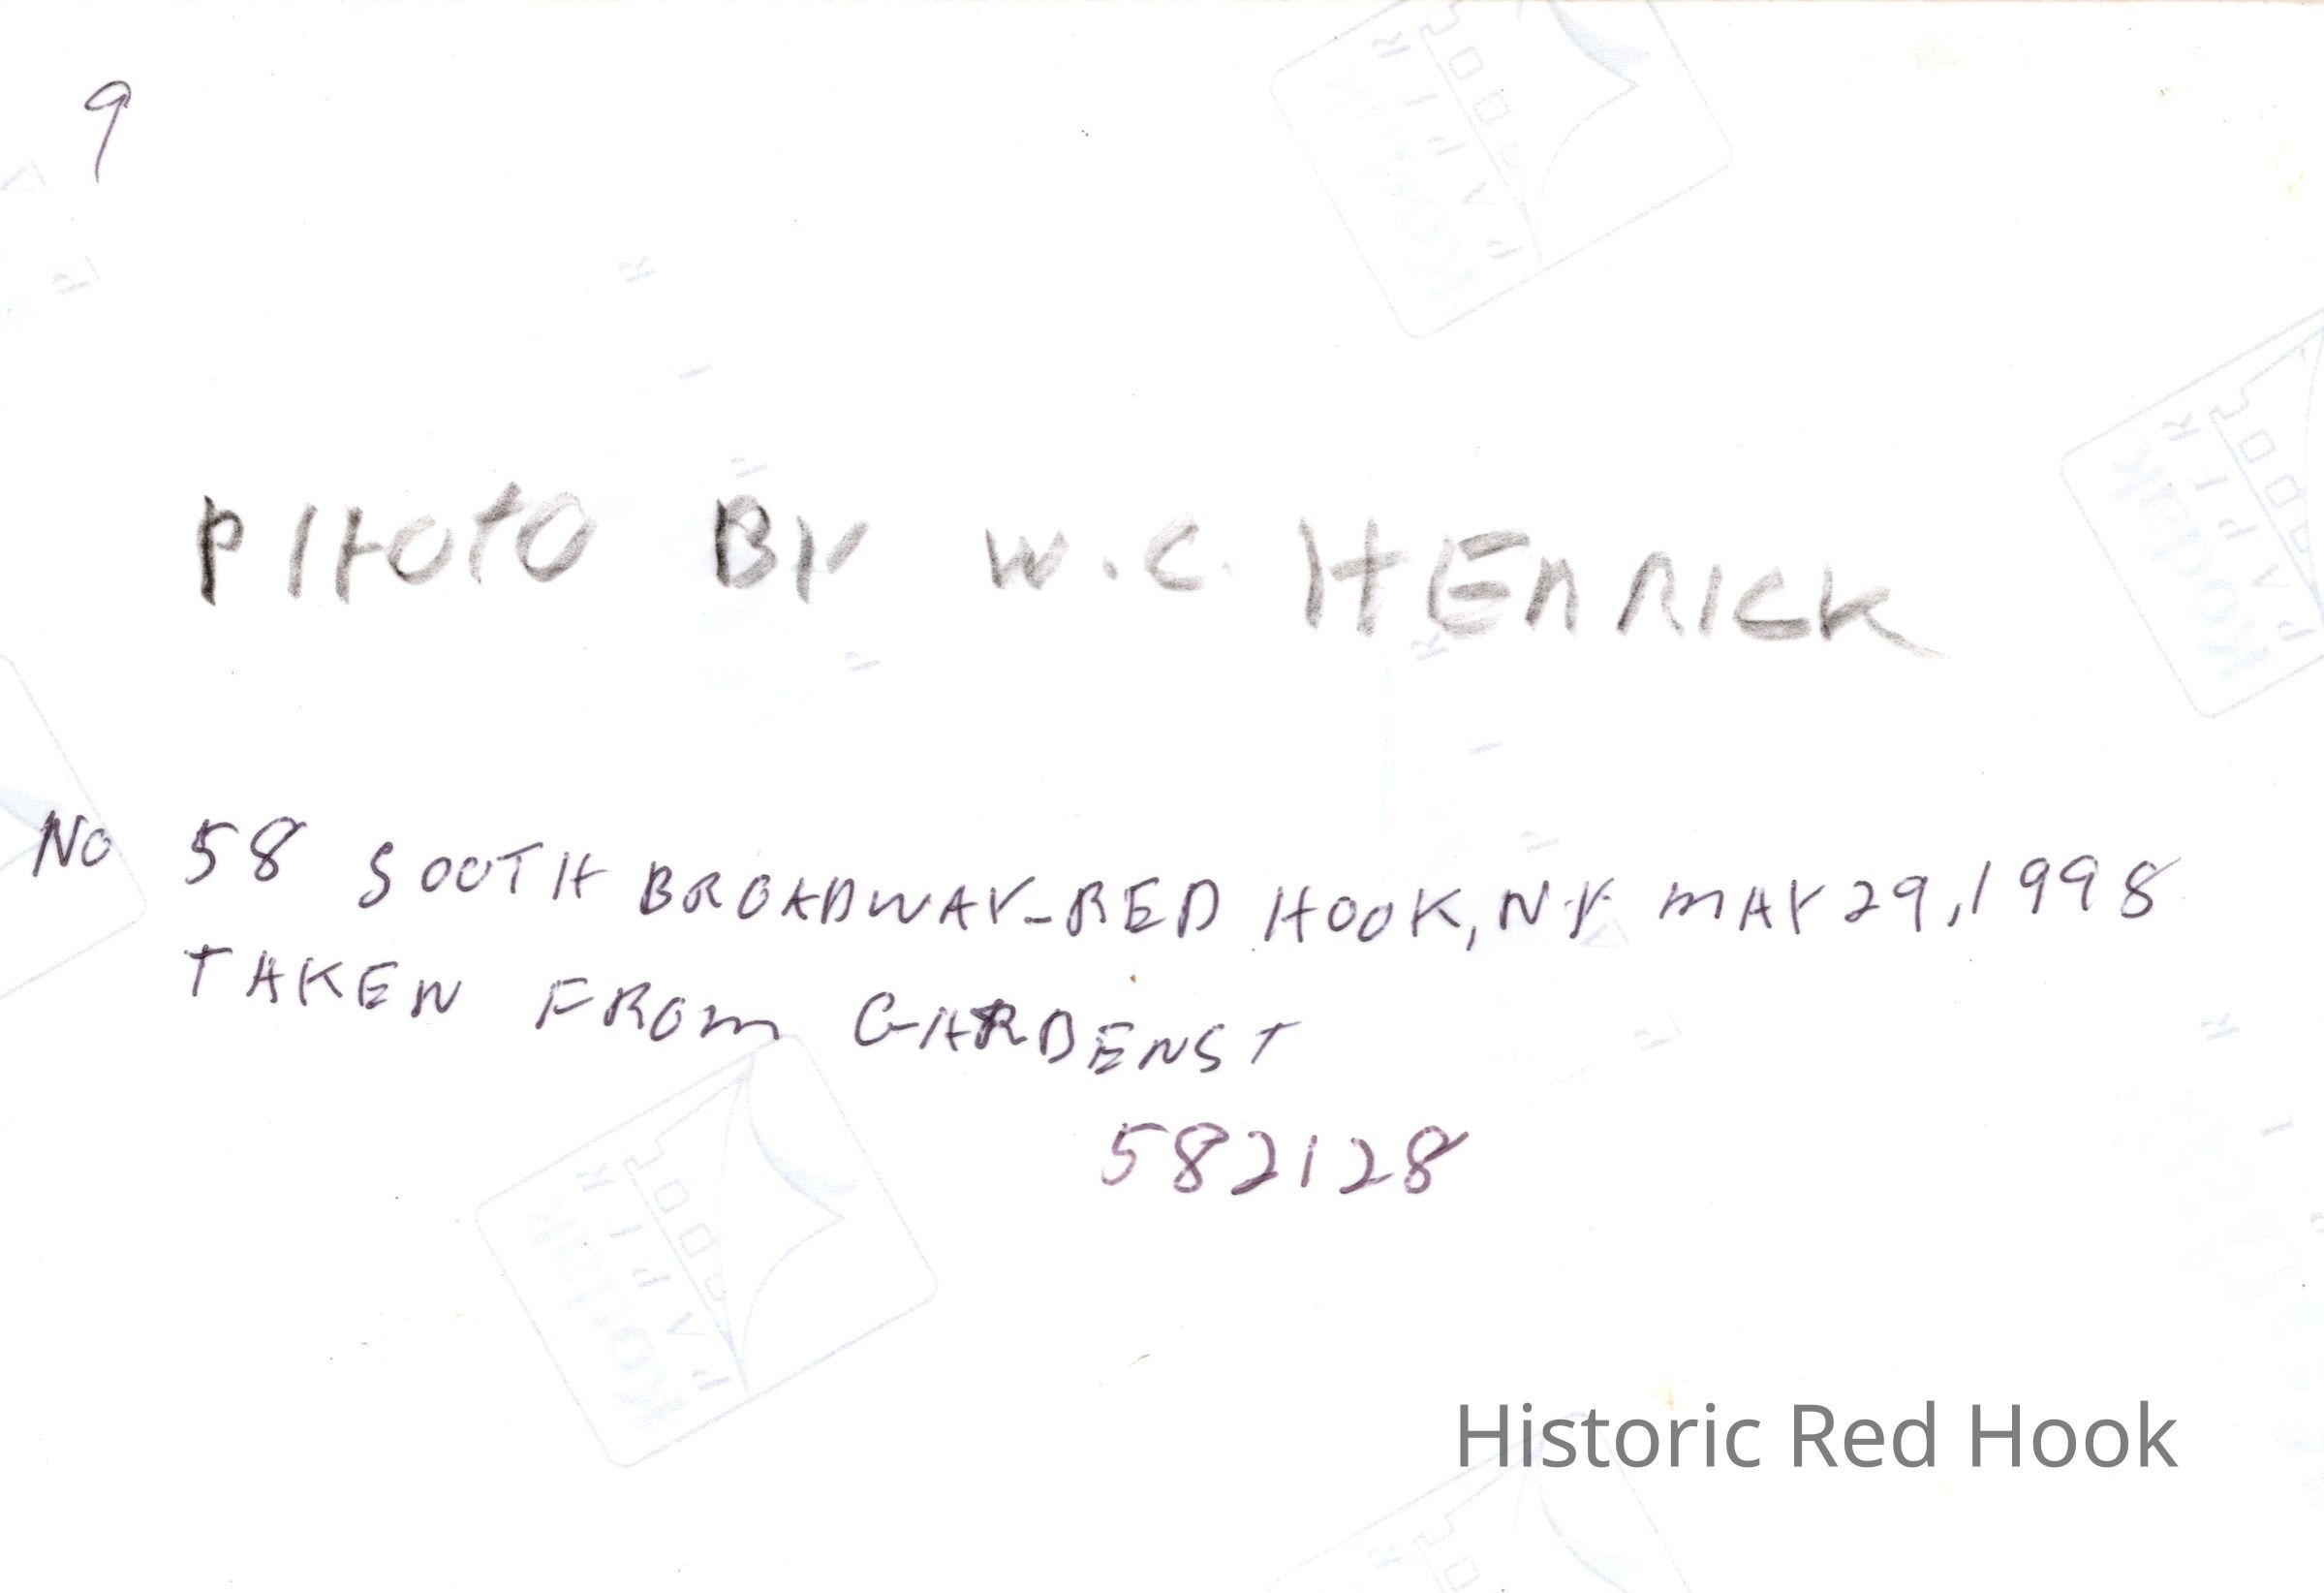 9
PHOTO BY W.C. HENRICK
NO 58 SOUTH BROADWAY-RED HOOK, NY MAY 29, 1998
TAKEN FROM GARDENST
582128
Historic Red Hook